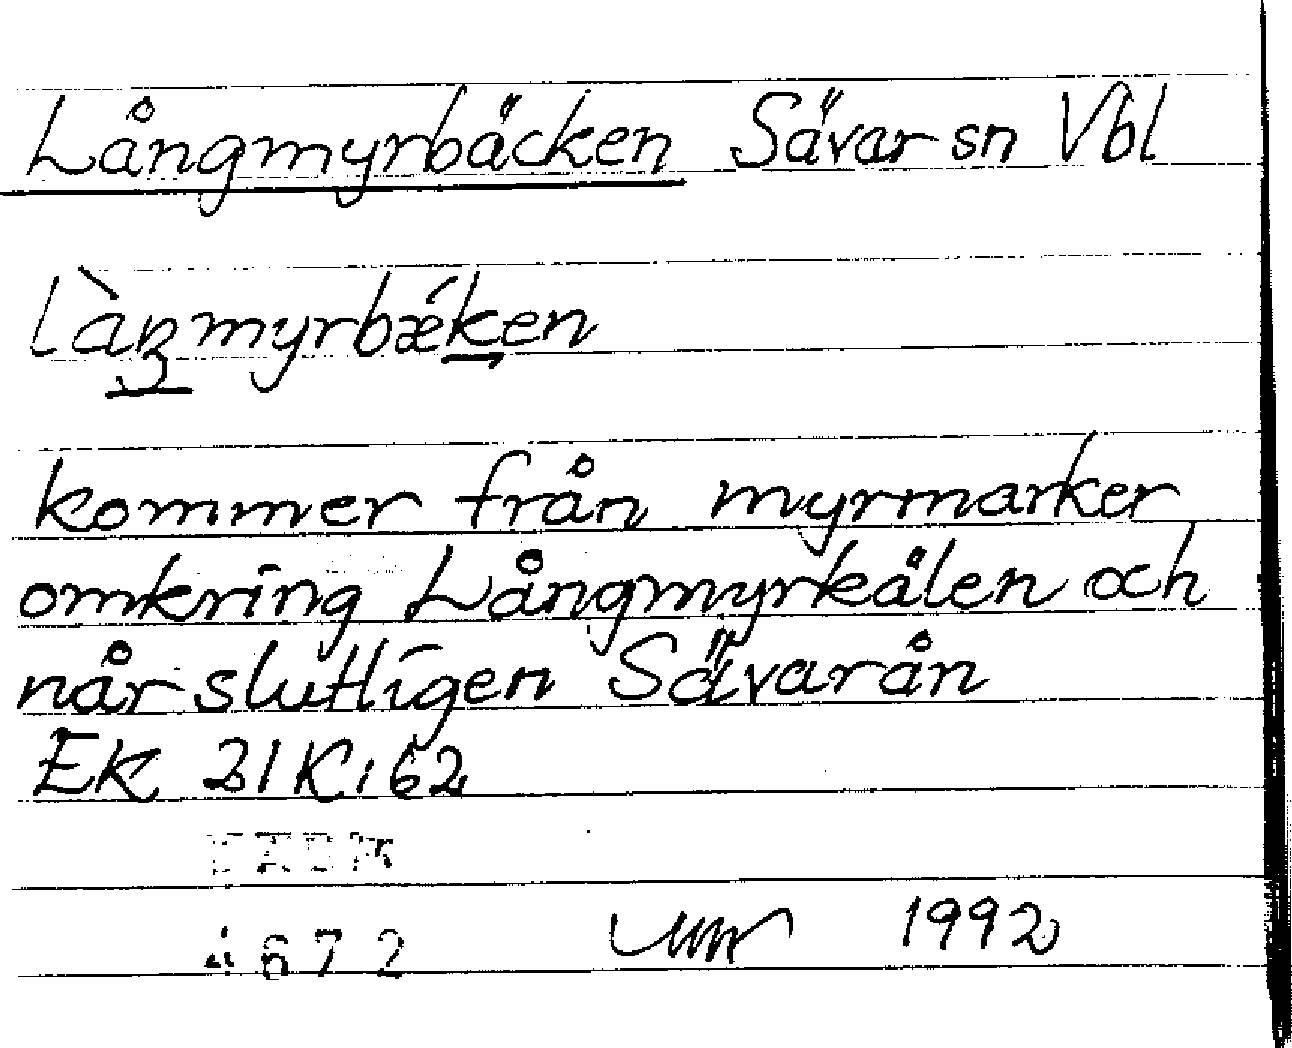 Långmyrbäcken Sävar sn Vbl
làŋmyrbǽken
kommer från myrmarker
omkring Långmyrkälen och
når slutligen Sävarån
Ek 21K:62
4672 1992